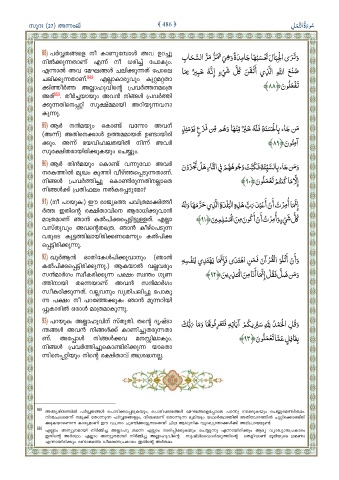 സൂറ: (27) അന്നംല്
(486)
سُورَةُ النَّمْل
88) പർവ്വതങ്ങളെ നീ കാണുമ്പോൾ അവ ഉറച്ചു
നിൽക്കുന്നതാണ് എന്ന് നീ ധരിച്ച് പോകും.
എന്നാൽ അവ മേഘങ്ങൾ ചലിക്കുന്നത് പോലെ
ചലിക്കുന്നതാണ്.
എല്ലാകാര്യവും കുറ്റമറ്റതാ
ക്കിത്തീർത്ത അല്ലാഹുവിന്റെ പ്രവർത്തനമത്രെ
അത്
തീർച്ചയായും അവൻ നിങ്ങൾ പ്രവർത്തി
ക്കുന്നതിനെപ്പറ്റി സൂക്ഷ്മമായി അറിയുന്നവനാ
കുന്നു.
وَتَرَى الْجِبَالَ تَحْسَبُهَا جَامِدَةً وَهِيَ تَمُرُّ مَرَّ السَّحَابِ
صُنْعَ اللَّهِ الَّذِي أَتْقَنَ كُلَّ شَيْءٍ إِنَّهُ خَبِيرٌ بِمَا
تَفْعَلُونَ ﴿٨٨﴾
89) ആർ നന്മയും കൊണ്ട് വന്നോ അവന്
(അന്ന്) അതിനെക്കാൾ ഉത്തമമായത് ഉണ്ടായിരി
ക്കും. അന്ന് ഭയവിഹ്വലതയിൽ നിന്ന് അവർ
സുരക്ഷിതരായിരിക്കുകയും ചെയ്യും.
مَن جَاءَ بِالْحَسَنَةِ فَلَهُ خَيْرٌ مِّنْهَا وَهُم مِّن فَزَعٍ يَوْمَئِذٍ
آمِنُونَ ﴿٨٩﴾
90) ആർ തിന്മയും കൊണ്ട് വന്നുവോ അവർ
നരകത്തിൽ മുഖം കുത്തി വീഴ്ത്തപ്പെടുന്നതാണ്.
നിങ്ങൾ പ്രവർത്തിച്ചു കൊണ്ടിരുന്നതിന്നല്ലാതെ
നിങ്ങൾക്ക് പ്രതിഫലം നൽകപ്പെടുമോ?
وَمَن جَاءَ بِالسَّيِّئَةِ فَكُبَّتْ وُجُوهُهُمْ فِي النَّارِ هَلْ تُجْزَوْنَ
إِلَّا مَا كُنتُمْ تَعْمَلُونَ ﴿٩٠﴾
91) (നീ പറയുക:) ഈ രാജ്യത്തെ പവിത്രമാക്കിത്തീ
ർത്ത ഇതിന്റെ രക്ഷിതാവിനെ ആരാധിക്കുവാൻ
മാത്രമാണ് ഞാൻ കൽപിക്കപ്പെട്ടിട്ടുള്ളത്. എല്ലാ
വസ്തുവും അവന്റെതത്രെ. ഞാൻ കീഴ്പെടുന്ന
വരുടെ കൂട്ടത്തിലായിരിക്കണമെന്നും കൽപിക്ക
പ്പെട്ടിരിക്കുന്നു.
إِنَّمَا أُمِرْتُ أَنْ أَعْبُدَ رَبَّ هَٰذِهِ الْبَلْدَةِ الَّذِي حَرَّمَهَا وَلَهُ
كُلُّ شَيْءٍ وَأُمِرْتُ أَنْ أَكُونَ مِنَ الْمُسْلِمِينَ ﴿٩١﴾
92) ഖുർആൻ ഓതികേൾപിക്കുവാനും (ഞാൻ
കൽപിക്കപ്പെട്ടിരിക്കുന്നു.) ആകയാൽ വല്ലവരും
സന്മാർഗം സ്വീകരിക്കുന്ന പക്ഷം സ്വന്തം ഗുണ
ത്തിനായി തന്നെയാണ് അവൻ സന്മാർഗം
സ്വീകരിക്കുന്നത്. വല്ലവനും വ്യതിചലിച്ചു പോകു
ന്ന പക്ഷം നീ പറഞ്ഞേക്കുക: ഞാൻ മുന്നറിയി
പ്പുകാരിൽ ഒരാൾ മാത്രമാകുന്നു.
وَأَنْ أَتْلُوَ الْقُرْآنَ فَمَنِ اهْتَدَىٰ فَإِنَّمَا يَهْتَدِي لِنَفْسِهِ
وَمَن ضَلَّ فَقُلْ إِنَّمَا أَنَا مِنَ الْمُنذِرِينَ ﴿٩٢﴾
93) പറയുക: അല്ലാഹുവിന് സ്തുതി. തന്റെ ദൃഷ്ടാ
ന്തങ്ങൾ അവൻ നിങ്ങൾക്ക് കാണിച്ചുതരുന്നതാ
ണ്. അപ്പോൾ നിങ്ങൾക്കവ മനസ്സിലാകും.
നിങ്ങൾ പ്രവർത്തിച്ചുകൊണ്ടിരിക്കുന്ന യാതൊ
ന്നിനെപ്പറ്റിയും നിന്റെ രക്ഷിതാവ് അശ്രദ്ധനല്ല.
وَقُلِ الْحَمْدُ لِلَّهِ سَيُرِيكُمْ آيَاتِهِ فَتَعْرِفُونَهَا وَمَا رَبُّكَ
بِغَافِلٍ عَمَّا تَعْمَلُونَ ﴿٩٣﴾